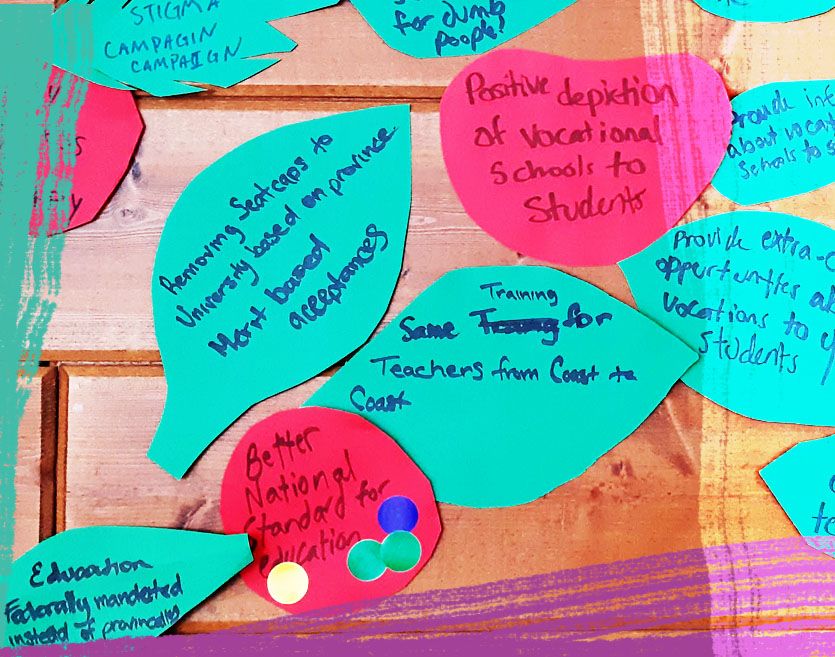 STIGMA
CAMPAGIN
CAMPAIGN
for dumb
people?
Positive depiction
of vocational
Schools to
Students
Provide
about
Schools to
Removing Seatcaps to
University based on province
Merit based
acceptances
Provide extra-
opportunities
vocations to
Students
Training
Same for
Teachers from Coast to
Coast
Better
National
Standard for
education
Education
Federally mandated
instead of provincially